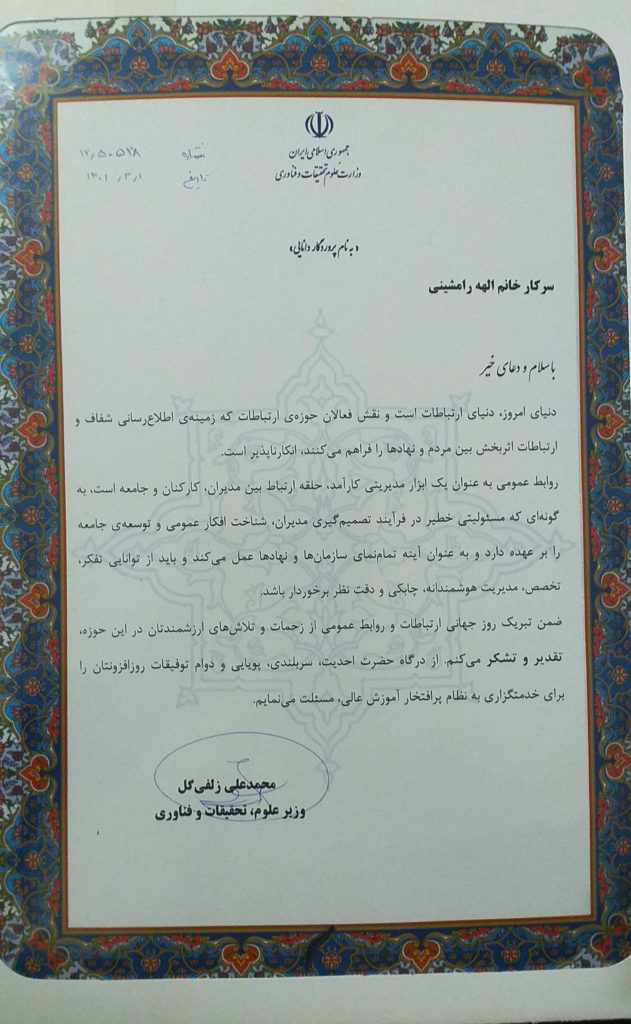 جمهوری اسلامی ایران
وزارت علوم تحقیقات و فناوری
شماره ۱۲٫۵۰۵۲۸
تاریخ ۱۴۰۱٫۳٫۱
«به نام پروردگار دانایی»
سرکار خانم الهه رامشینی
با سلام و دعای خیر
دنیای امروز، دنیای ارتباطات است و نقش فعالان حوزه‌ی ارتباطات که زمینه‌ی اطلاع‌رسانی شفاف و
ارتباطات اثربخش بین مردم و نهادها را فراهم می‌کنند، انکارناپذیر است.
روابط عمومی به عنوان یک ابزار مدیریتی کارآمد، حلقه ارتباط بین مدیران، کارکنان و جامعه است، به
گونه‌ای که مسئولیتی خطیر در فرآیند تصمیم‌گیری مدیران، شناخت افکار عمومی و توسعه‌ی جامعه
را بر عهده دارد و به عنوان آینه تمام‌نمای سازمان‌ها و نهادها عمل می‌کند و باید از توانایی تفکر،
تخصص، مدیریت هوشمندانه، چابکی و دقت نظر برخوردار باشد.
ضمن تبریک روز جهانی ارتباطات و روابط عمومی از زحمات و تلاش‌های ارزشمندتان در این حوزه،
تقدیر و تشکر می‌کنم. از درگاه حضرت احدیت، سربلندی، پویایی و دوام توفیقات روزافزونتان را
برای خدمتگزاری به نظام پرافتخار آموزش عالی، مسئلت می‌نمایم.
محمدعلی زلفی‌گل
وزیر علوم، تحقیقات و فناوری